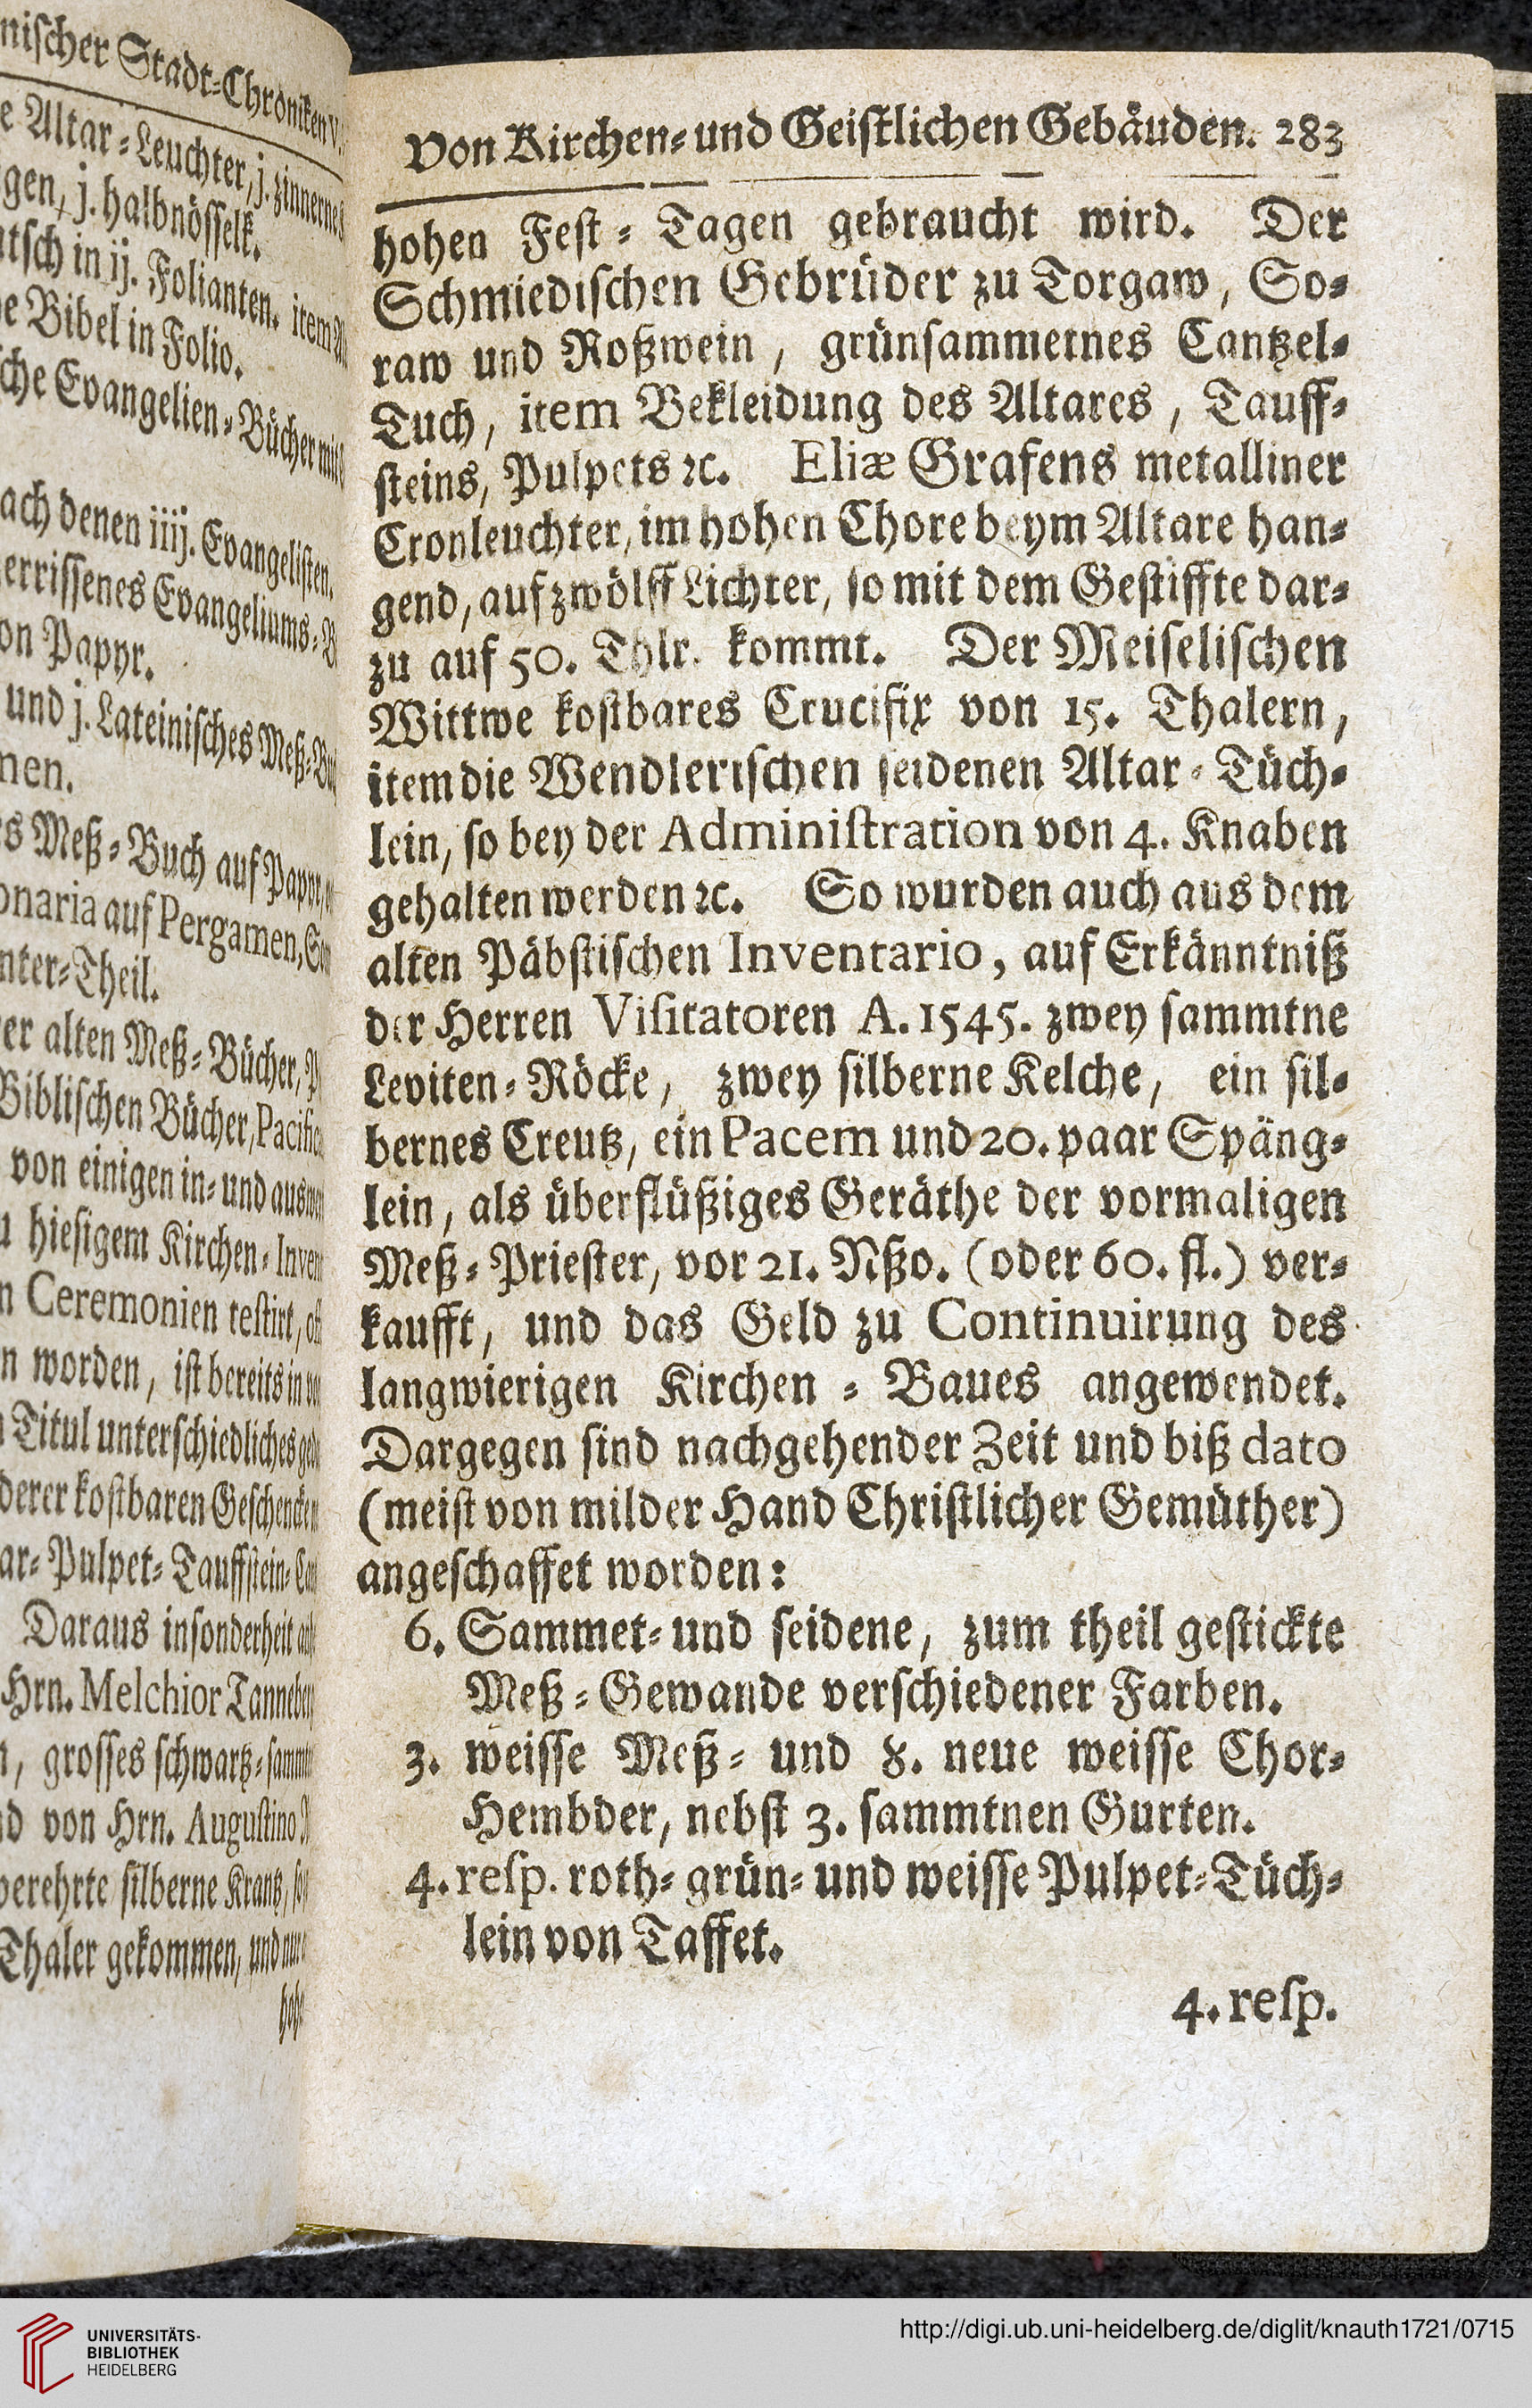 nischer Stadt-Chroniken
e Altar-Leuchter, j. zinnernes
gen, j. halbnösselk.
tsch in ij. Folianten. item
e Bibel in Folio.
che Evangelien-Bücher mit
ach denen iiij. Evangelisten.
errissenes Evangeliums-
on Papyr.
und j. Lateinisches Meß-
nen.
s Meß-Buch auf Papyr,
onaria auf Pergamen,
nter-Theil.
er alten Meß-Bücher,
Biblischen Bücher,
von einigen in- und
hiesigem Kirchen-
n Ceremonien restirt,
n worden, ist bereits in
Titul unterschiedliches
derer kostbaren Geschencken
ar-Pulpet-Tauffstein-
Daraus insonderheit
Hrn. Melchior
, grosses schwartz-
d von Hrn. Augustino
verehrte silberne Krantz,
Thaler gekommen, und
hohe
Von Kirchen- und Geistlichen Gebäuden. 283
hohen Fest-Tagen gebraucht wird. Der
Schmiedischen Gebrüder zu Torgaw, So-
raw und Roßwein, grünsammetnes Cantzel-
Tuch, item Bekleidung des Altares, Tauff-
steins, Pulpets ꝛc. Eliæ Grafens metalliner
Cronleuchter, im hohen Chore beym Altare han-
gend, auf zwölff Lichter, so mit dem Gestiffte dar-
zu auf 50. Thlr. kommt. Der Meiselischen
Wittwe kostbares Crucifix von 15. Thalern,
item die Wendlerischen seidenen Altar-Tüch-
lein, so bey der Administration von 4. Knaben
gehalten werden ꝛc. So wurden auch aus dem
alten Päbstischen Inventario, auf Erkänntniß
der Herren Visitatoren A. 1545. zwey sammtne
Leviten-Röcke, zwey silberne Kelche, ein sil-
bernes Creutz, ein Pacem und 20. paar Späng-
lein, als überflüßiges Geräthe der vormaligen
Meß-Priester, vor 21. Nßo. (oder 60. fl.) ver-
kaufft, und das Geld zu Continuirung des
langwierigen Kirchen-Baues angewendet.
Dargegen sind nachgehender Zeit und biß dato
(meist von milder Hand Christlicher Gemüther)
angeschaffet worden:
6. Sammet- und seidene, zum theil gestickte
Meß-Gewande verschiedener Farben.
3. weisse Meß- und 8. neue weisse Chor-
Hembder, nebst 3. sammtnen Gurten.
4. resp. roth- grün- und weisse Pulpet-Tüch-
lein von Taffet.
4. resp.
UNIVERSITÄTS-
BIBLIOTHEK
HEIDELBERG
http://digi.ub.uni-heidelberg.de/diglit/knauth1721/0715